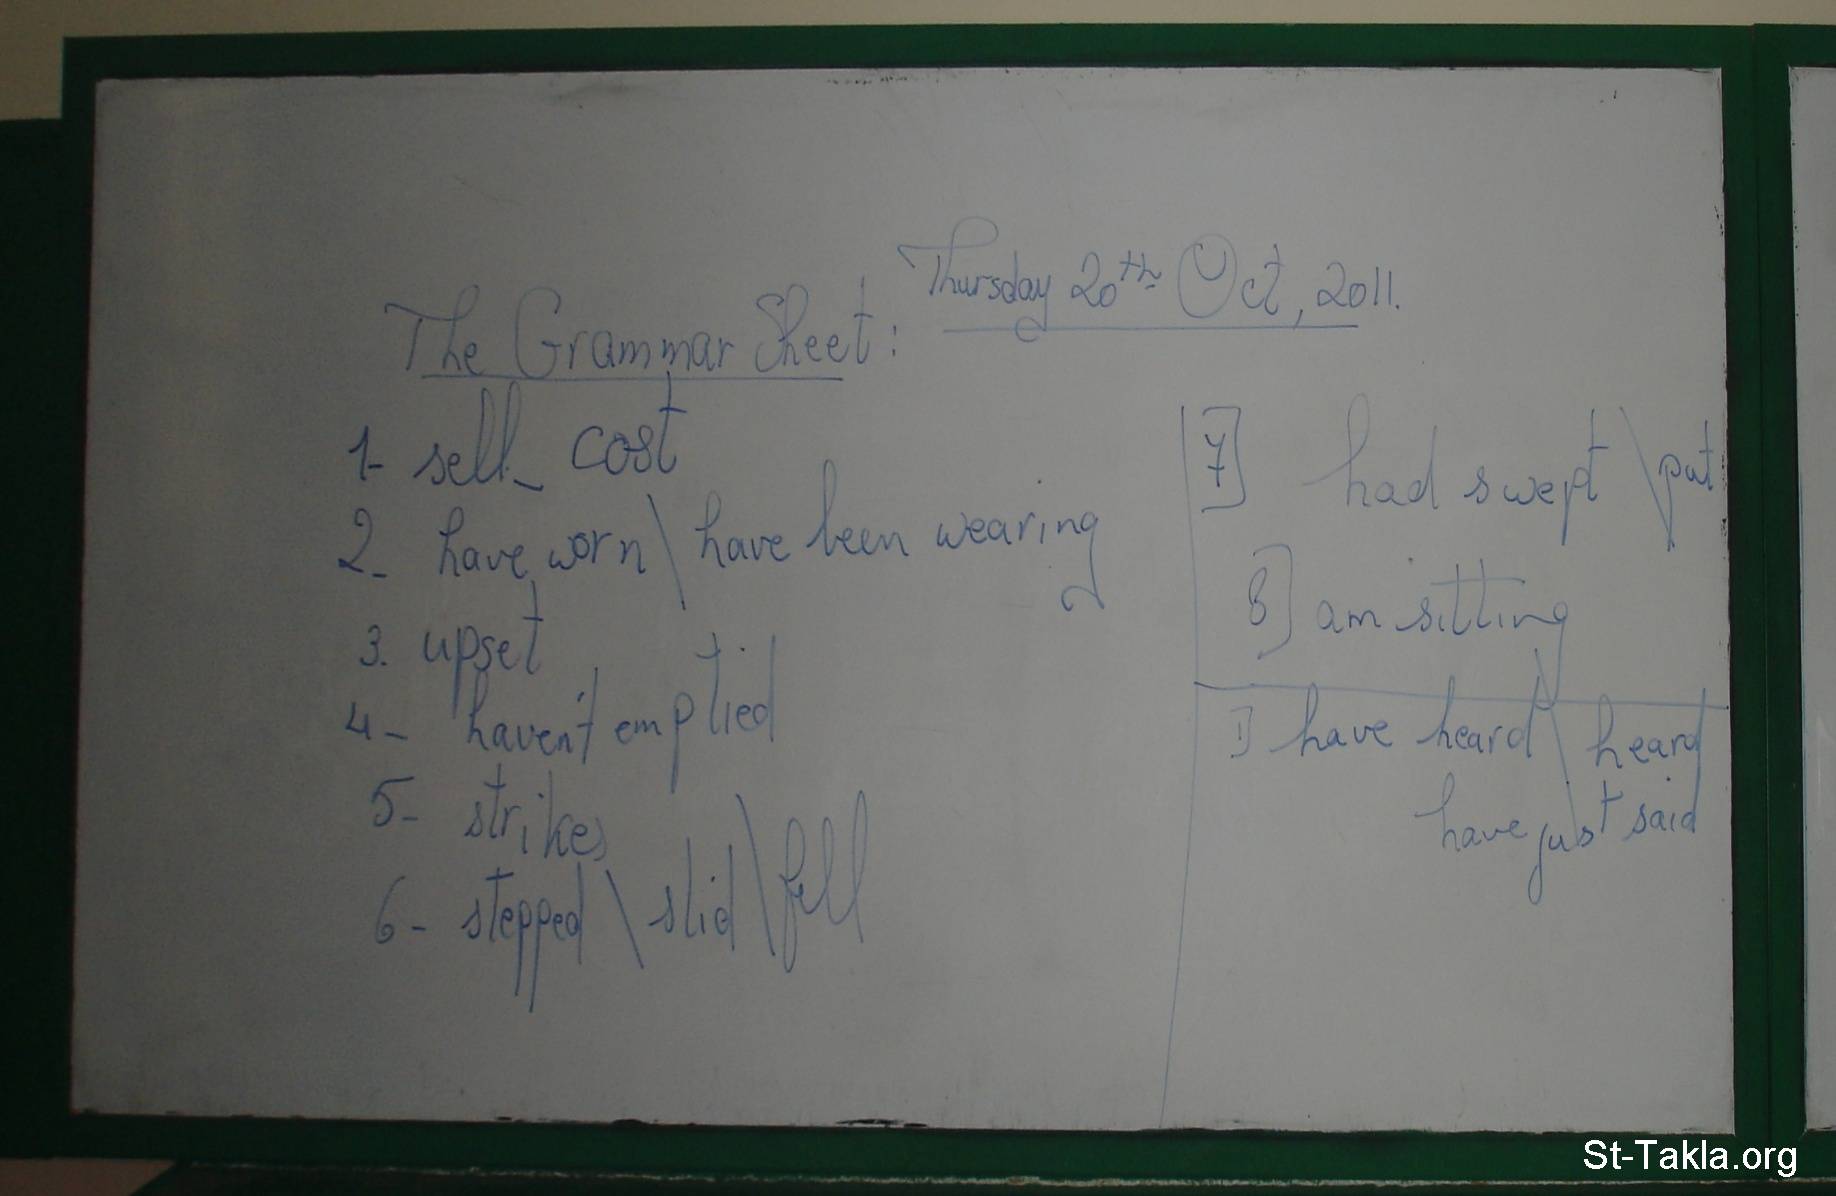 Thursday 20th Oct, 2011.
The Grammar Sheet:
1- sell - cost
2- have worn \ have been wearing
3. upset
4- haven't emptied
5- strikes
6- stepped \ slid \ fell
7] had swept \ put
8] am sitting
1] have heard \ heard
have just said
St-Takla.org